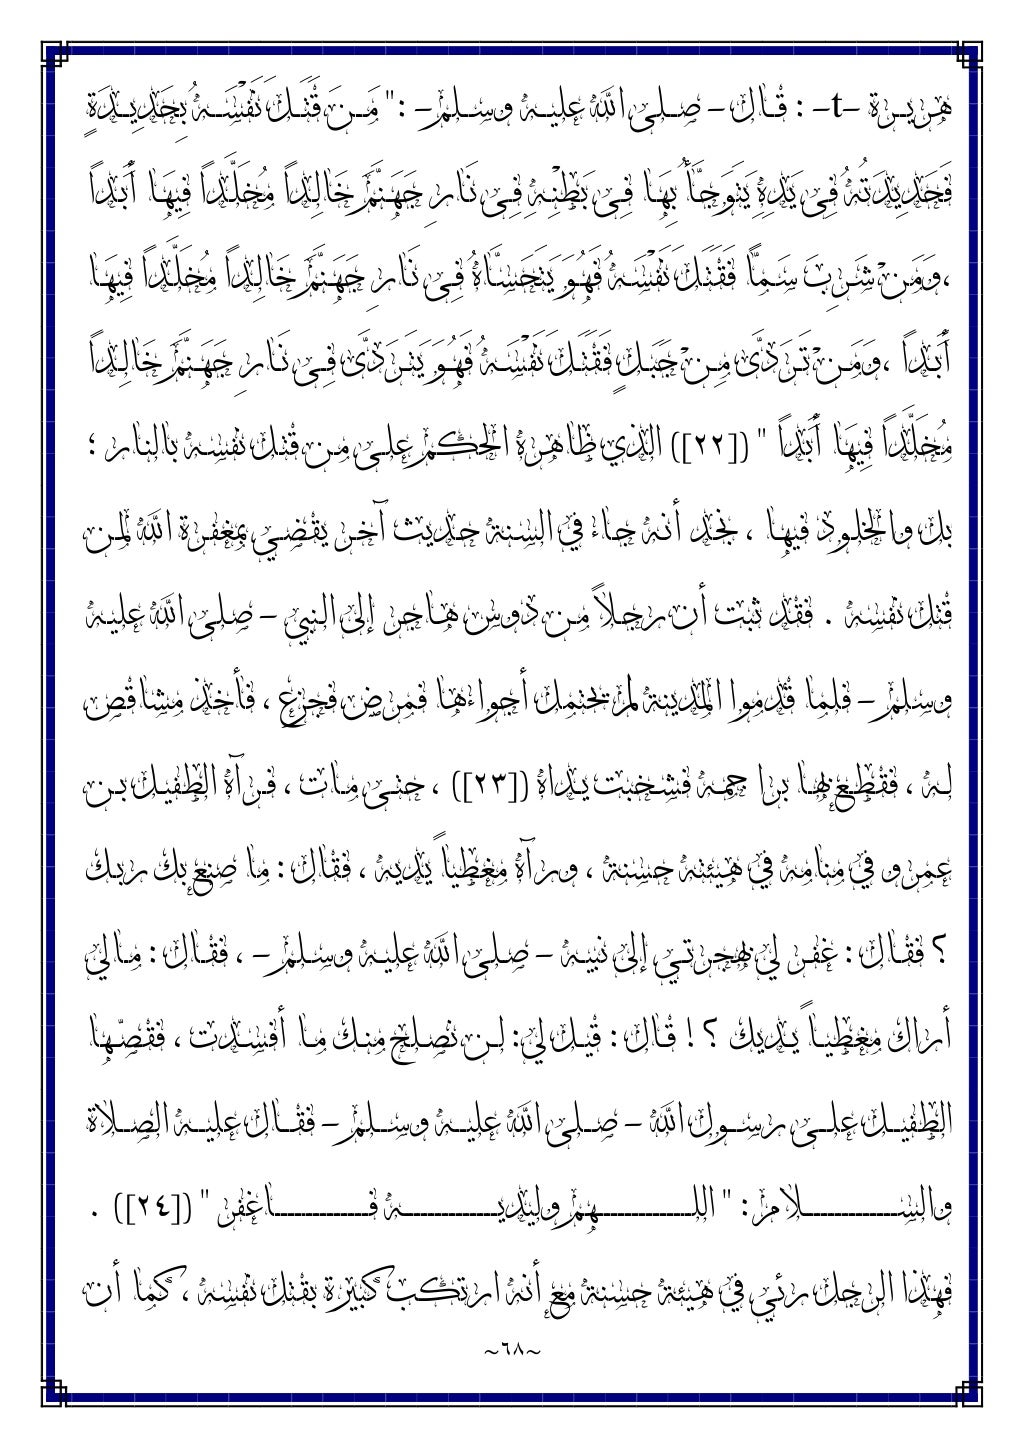 هريرة –t– : قال – صلى الله عليه وسلم – :" مَن قَتَلَ نَفْسَهُ بِحَدِيدَةٍ
فَحَدِيدَتُهُ فِي يَدِهِ يَتَوَجَّأُ بِهَا فِي بَطْنِهِ فِي نَارِ جَهَنَّمَ خَالِداً مُخَلَّداً فِيهَا أَبَداً
،وَمَنْ شَرِبَ سَمًّا فَقَتَلَ نَفْسَهُ فَهُوَ يَتَحَسَّاهُ فِي نَارِ جَهَنَّمَ خَالِداً مُخَلَّداً فِيهَا
أَبَداً ،وَمَنْ تَرَدَّى مِنْ جَبَلٍ فَقَتَلَ نَفْسَهُ فَهُوَ يَتَرَدَّى فِي نَارِ جَهَنَّمَ خَالِداً
مُخَلَّداً فِيهَا أَبَداً " ([٢٢]) الذي ظاهره الحكم على من قتل نفسه بالنار ؛
بل والخلود فيها ، نجد أنه جاء في السنة حديث آخر يقضي بمغفرة الله لمن
قتل نفسه . فقد ثبت أن رجلاً من دوس هاجر إلى النبي – صلى الله عليه
وسلم – فلما قدموا المدينة لم تحتمل أجواءها فمرض فجزع ، فأخذ مشاقص
له ، فقطع بها براجمه فشخبت يداه ([٢٣]) ، حتى مات ، فرآه الطفيل بن
عمرو في منامه في هيئته حسنة ، ورآه مغطياً يديه ، فقال : ما صنع بك ربك
؟ فقال : غفر لي بهجرتي إلى نبيه – صلى الله عليه وسلم – ، فقال : مالي
أراك مغطياً يديك ؟ ! قال : قيل لي: لن نصلح منك ما أفسدت ، فقصّها
الطفيل على رسول الله – صلى الله عليه وسلم – فقال عليه الصلاة
والسلام : " اللهم وليديه فاغفر " ([٢٤]) .
فهذا الرجل رئي في هيئة حسنة مع أنه ارتكب كبيرة بقتل نفسه ، كما أن
~٦٨~